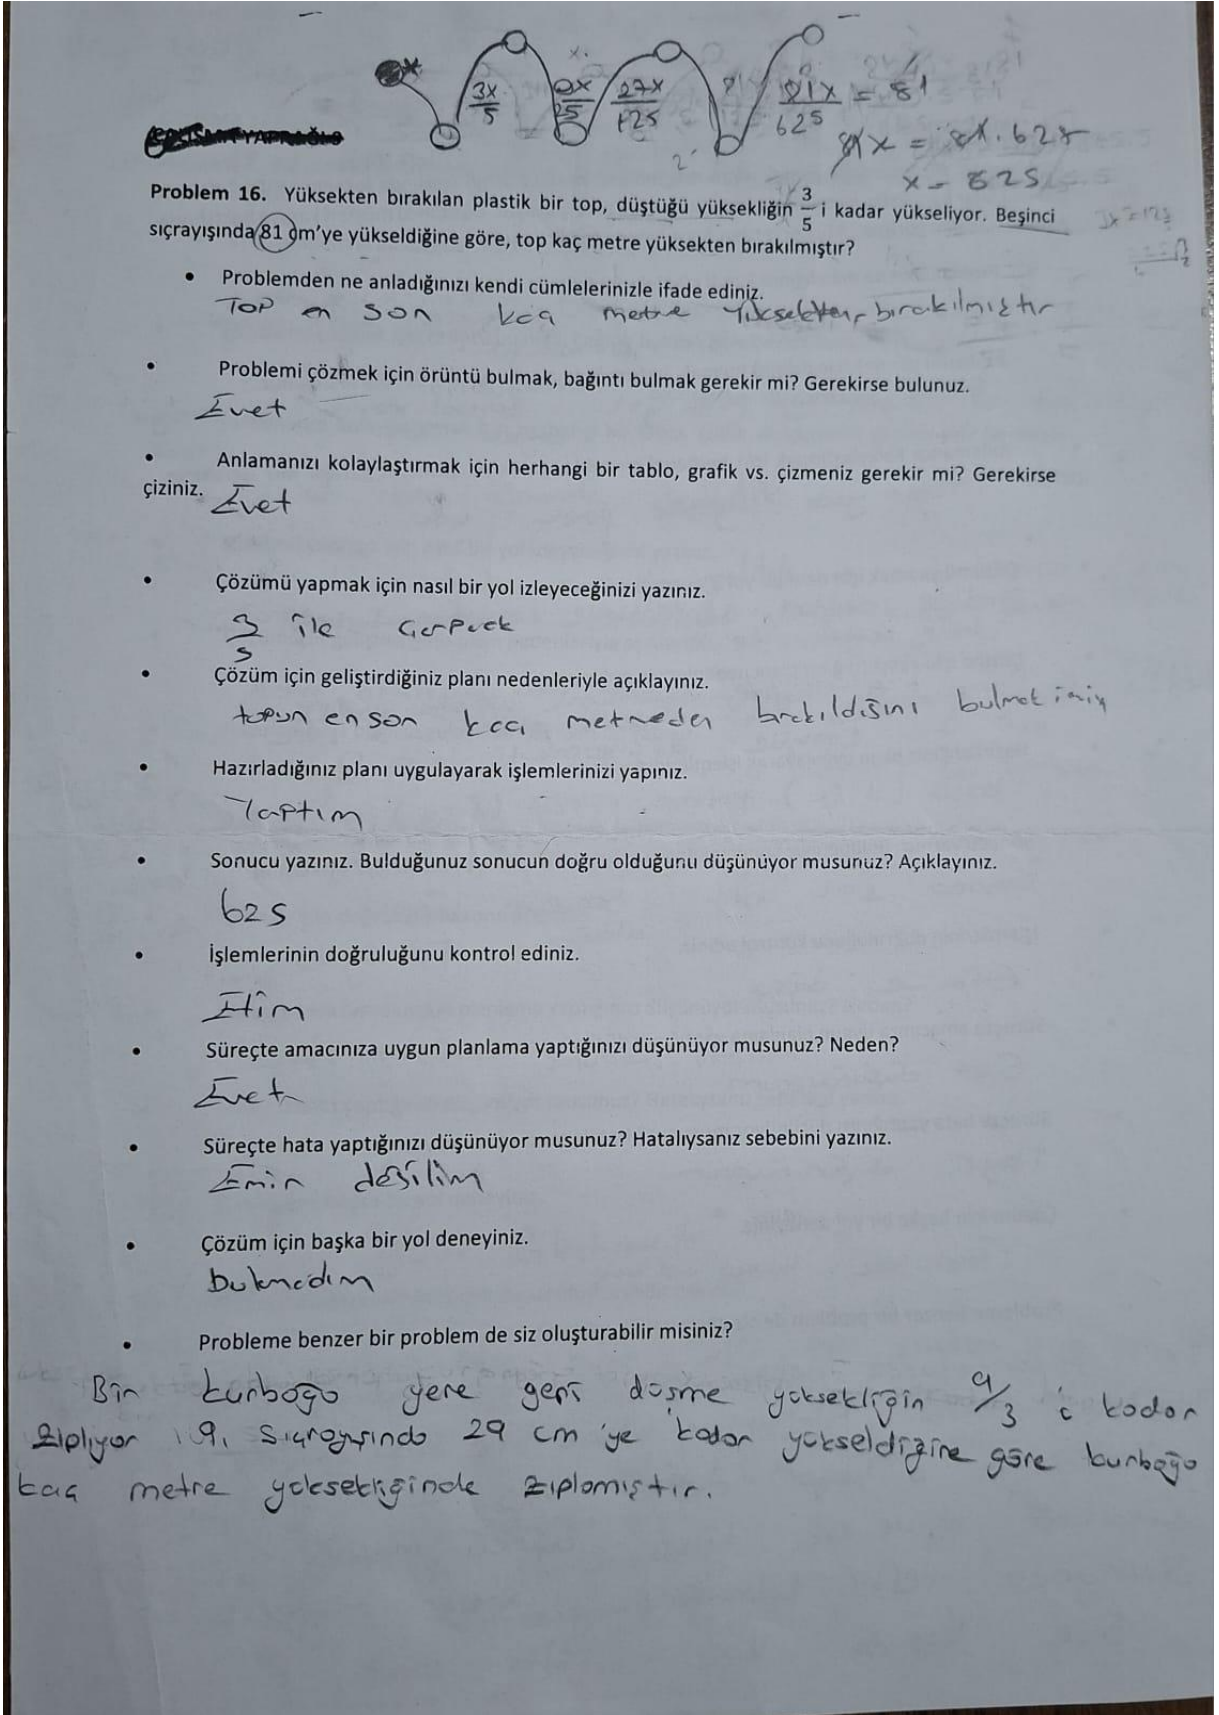 3x/5 9x/25 27x/125 81x/625 = 81
81x = 81.625
x = 625
Problem 16. Yüksekten bırakılan plastik bir top, düştüğü yüksekliğin 3/5 i kadar yükseliyor. Beşinci
sıçrayışında 81 cm'ye yükseldiğine göre, top kaç metre yüksekten bırakılmıştır?
• Problemden ne anladığınızı kendi cümlelerinizle ifade ediniz.
Top en son kaç metre Yüksekten bırakılmıştır
• Problemi çözmek için örüntü bulmak, bağıntı bulmak gerekir mi? Gerekirse bulunuz.
Evet
• Anlamanızı kolaylaştırmak için herhangi bir tablo, grafik vs. çizmeniz gerekir mi? Gerekirse
çiziniz. Evet
• Çözümü yapmak için nasıl bir yol izleyeceğinizi yazınız.
3/5 ile Çarparak
• Çözüm için geliştirdiğiniz planı nedenleriyle açıklayınız.
topun en son kaç metreden bırakıldığını bulmak için
• Hazırladığınız planı uygulayarak işlemlerinizi yapınız.
Yaptım
• Sonucu yazınız. Bulduğunuz sonucun doğru olduğunu düşünüyor musunuz? Açıklayınız.
625
• İşlemlerinin doğruluğunu kontrol ediniz.
Ettim
• Süreçte amacınıza uygun planlama yaptığınızı düşünüyor musunuz? Neden?
Evet
• Süreçte hata yaptığınızı düşünüyor musunuz? Hatalıysanız sebebini yazınız.
Emin değilim
• Çözüm için başka bir yol deneyiniz.
bulamadım
• Probleme benzer bir problem de siz oluşturabilir misiniz?
Bir kurbağa yere geri düşme yüksekliğin 9/3 i kadar
zıplıyor 9. Sıçrayışında 29 cm 'ye kadar yükseldiğine göre kurbağa
kaç metre yüksekliğinde zıplamıştır.